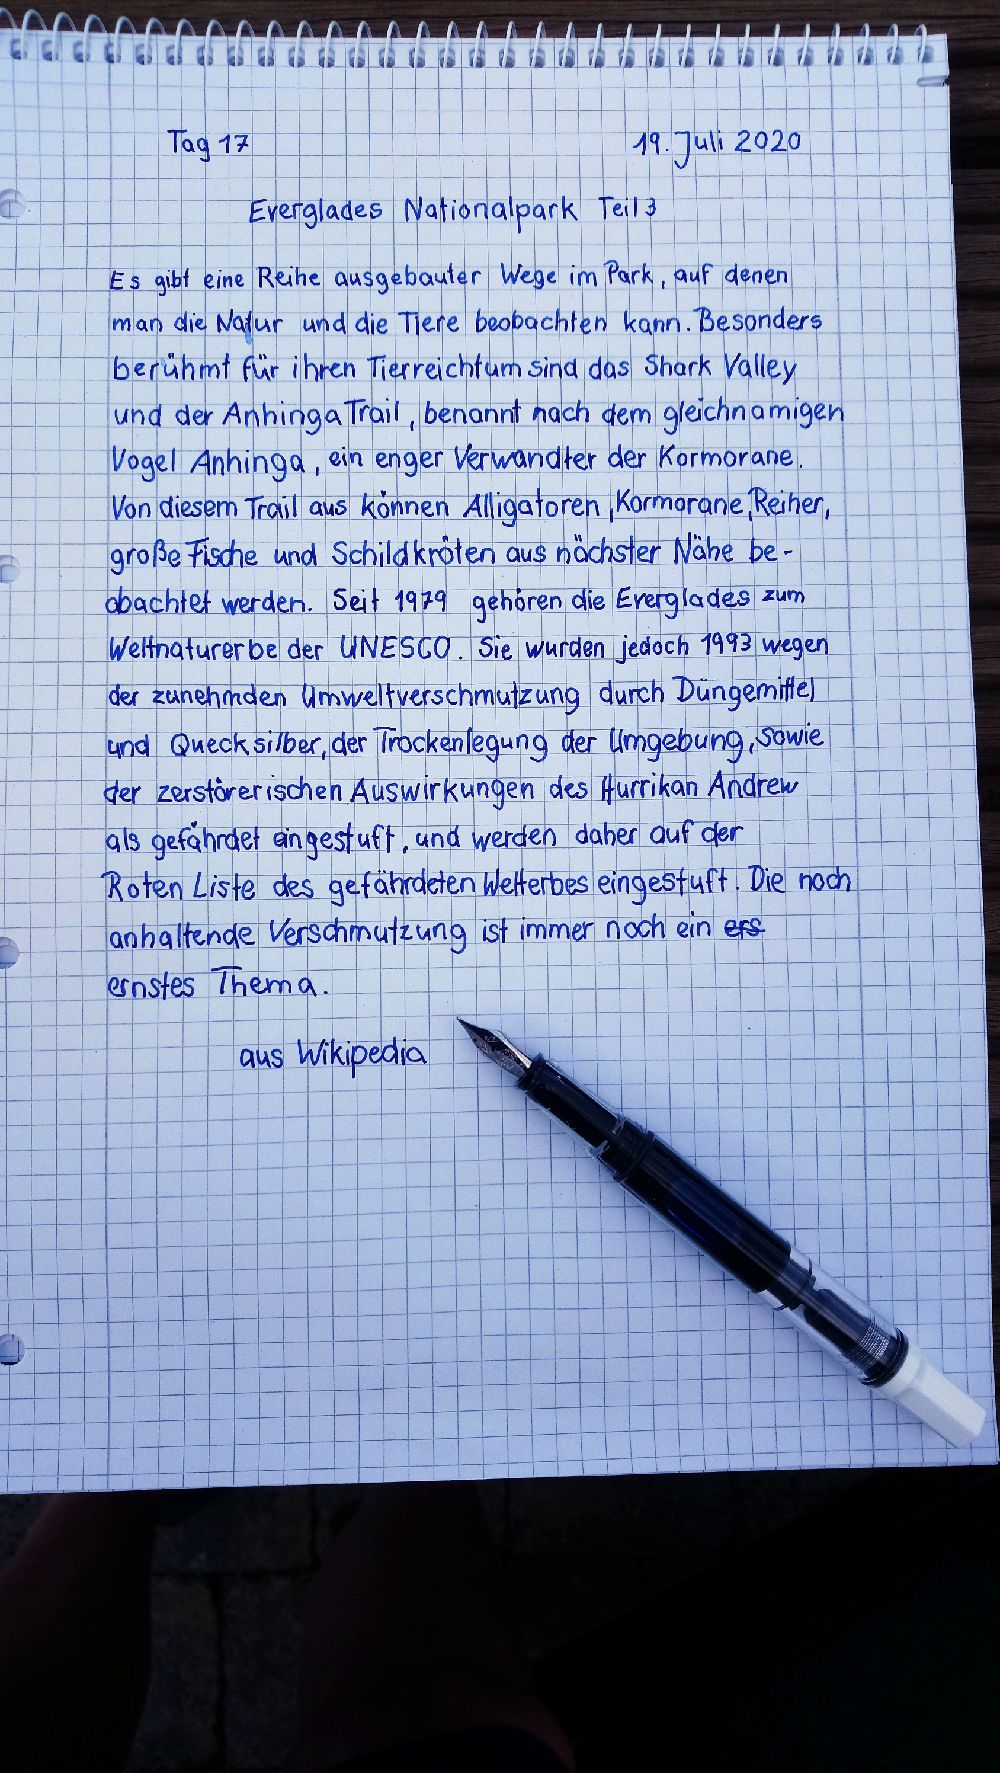 Tag 17 19. Juli 2020
Everglades Nationalpark Teil 3
Es gibt eine Reihe ausgebauter Wege im Park, auf denen
man die Natur und die Tiere beobachten kann. Besonders
berühmt für ihren Tierreichtum sind das Shark Valley
und der Anhinga Trail, benannt nach dem gleichnamigen
Vogel Anhinga, ein enger Verwandter der Kormorane.
Von diesem Trail aus können Alligatoren, Kormorane, Reiher,
große Fische und Schildkröten aus nächster Nähe be-
obachtet werden. Seit 1979 gehören die Everglades zum
Weltnaturerbe der UNESCO. Sie wurden jedoch 1993 wegen
der zunehmden Umweltverschmutzung durch Düngemittel
und Quecksilber, der Trockenlegung der Umgebung, sowie
der zerstörerischen Auswirkungen des Hurrikan Andrew
als gefährdet eingestuft, und werden daher auf der
Roten Liste des gefährdeten Welterbes eingestuft. Die noch
anhaltende Verschmutzung ist immer noch ein ers
ernstes Thema.
aus Wikipedia